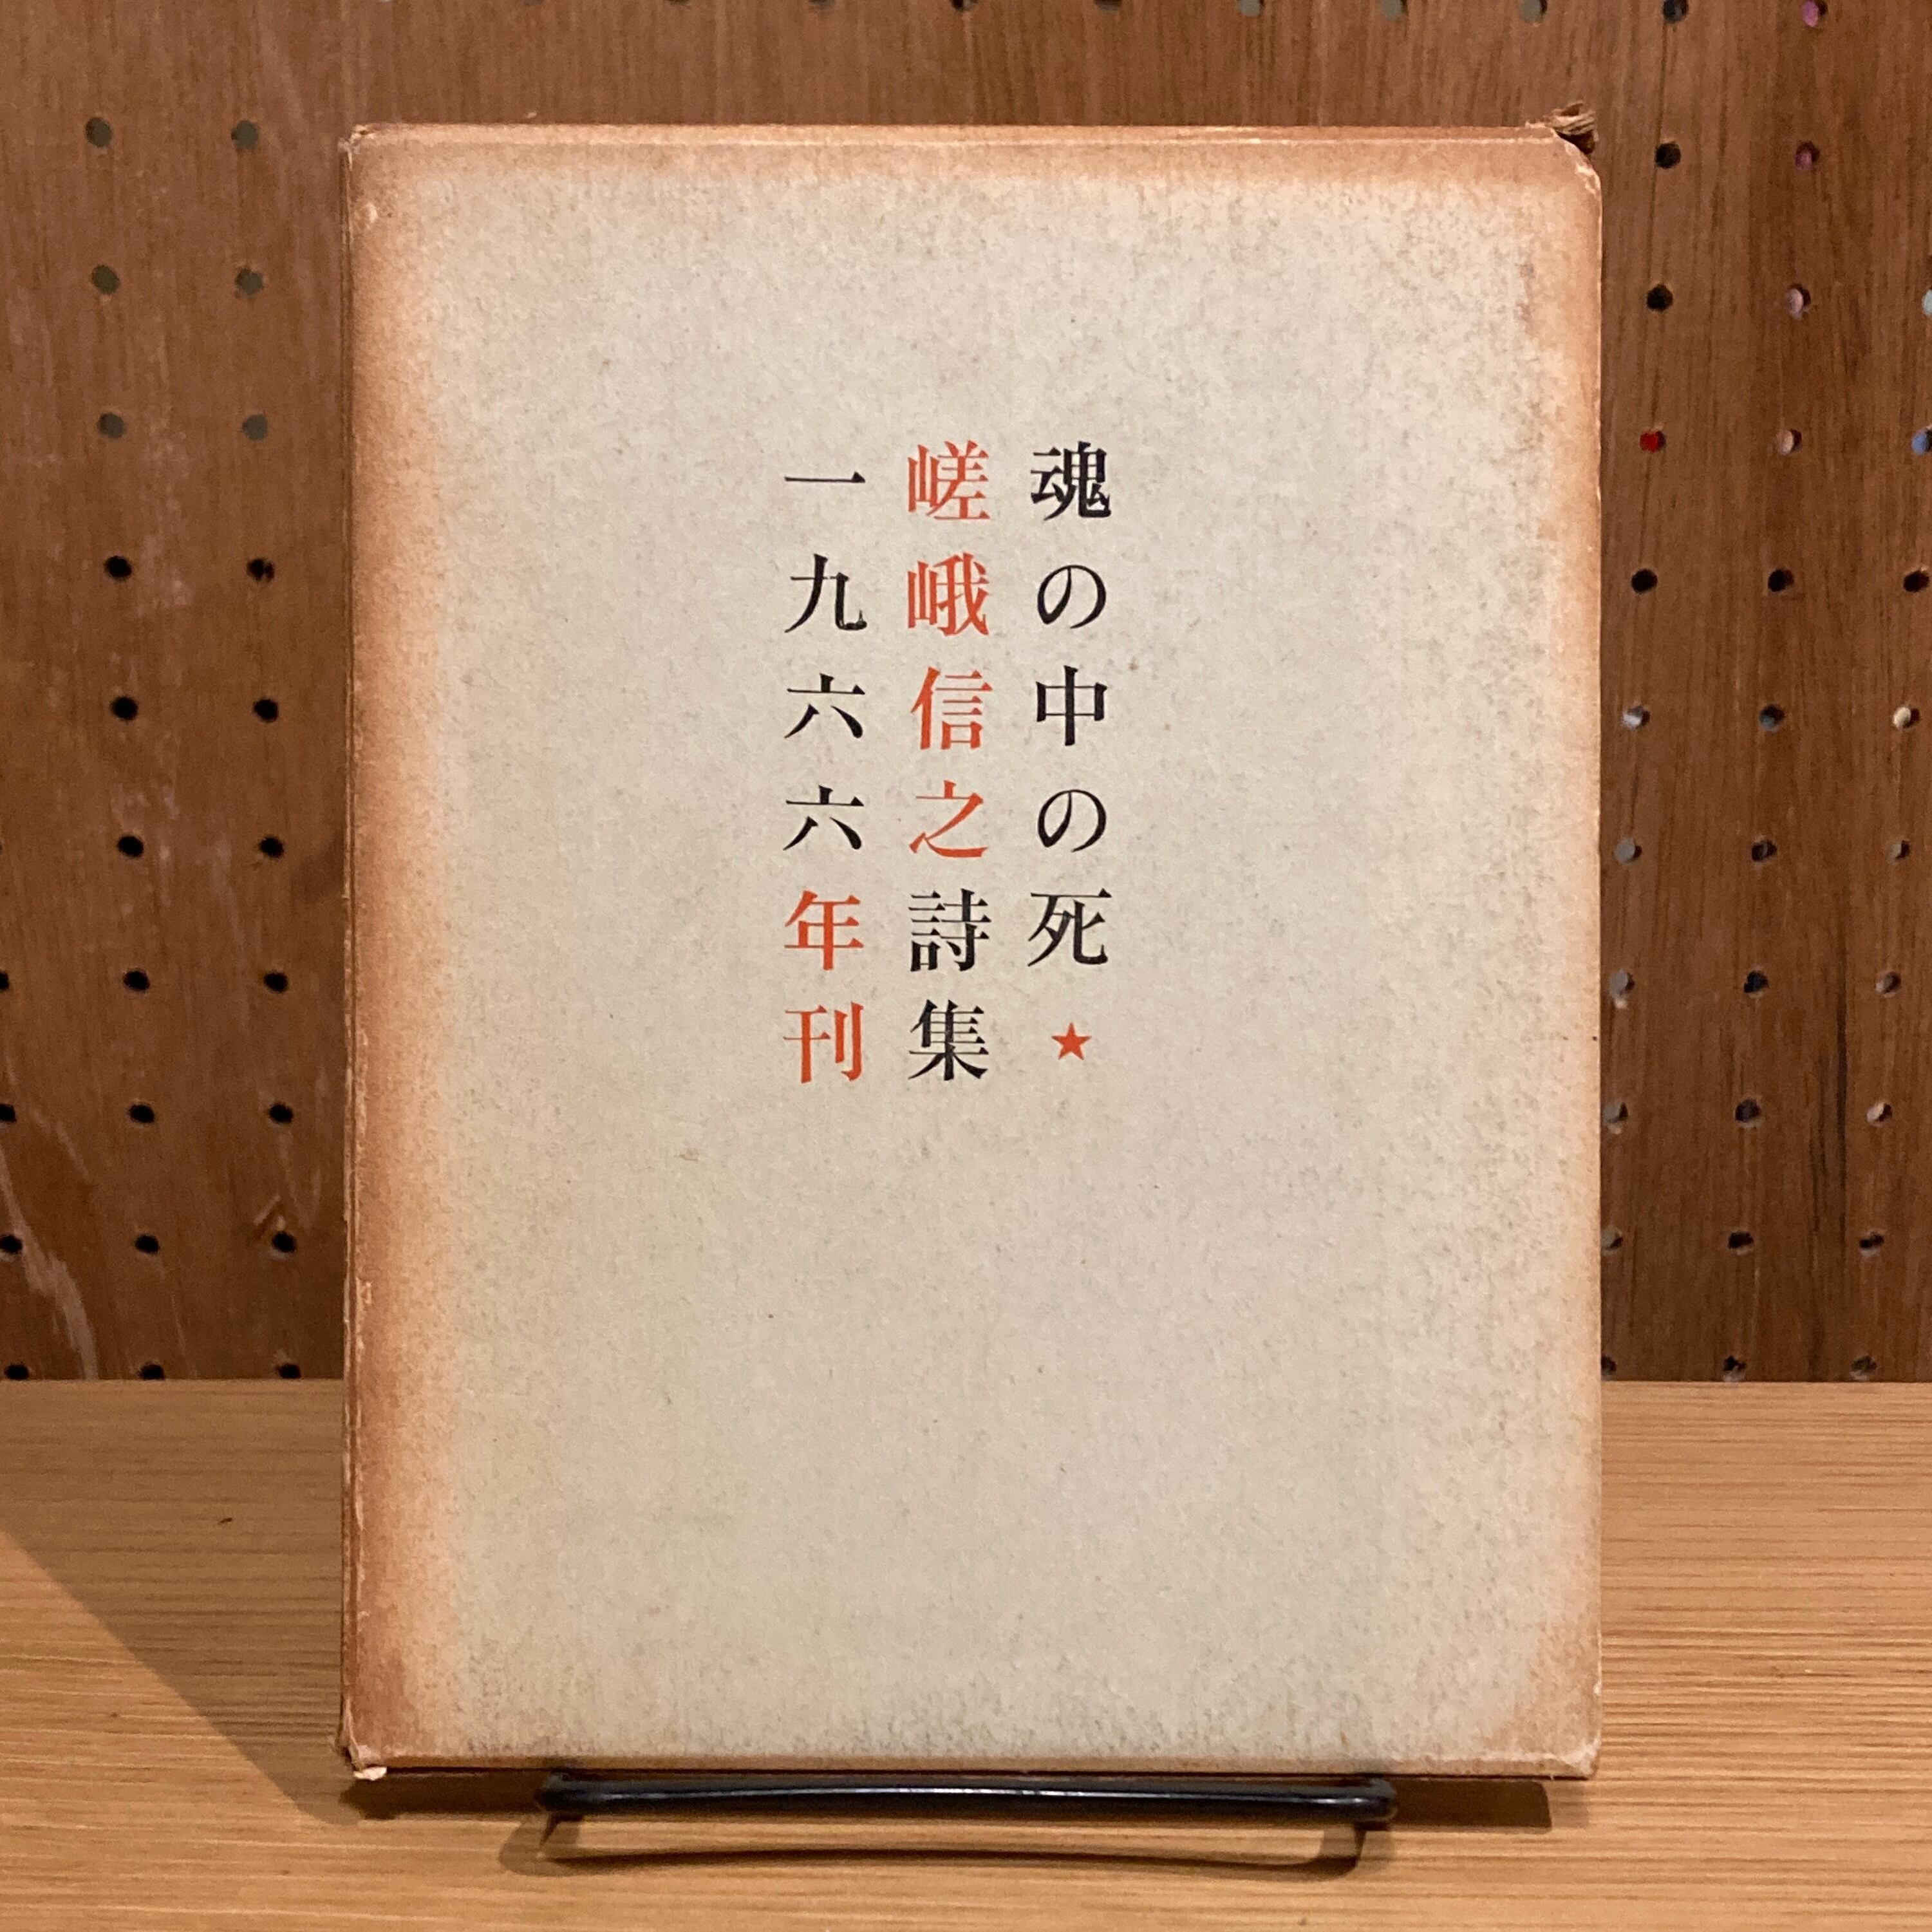 魂の中の死★
嵯峨信之詩集
一九六六年刊